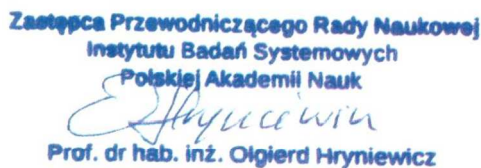 Zastępca Przewodniczącego Rady Naukowej
Instytutu Badań Systemowych
Polskiej Akademii Nauk
Hryniewicz
Prof. dr hab. inż. Olgierd Hryniewicz